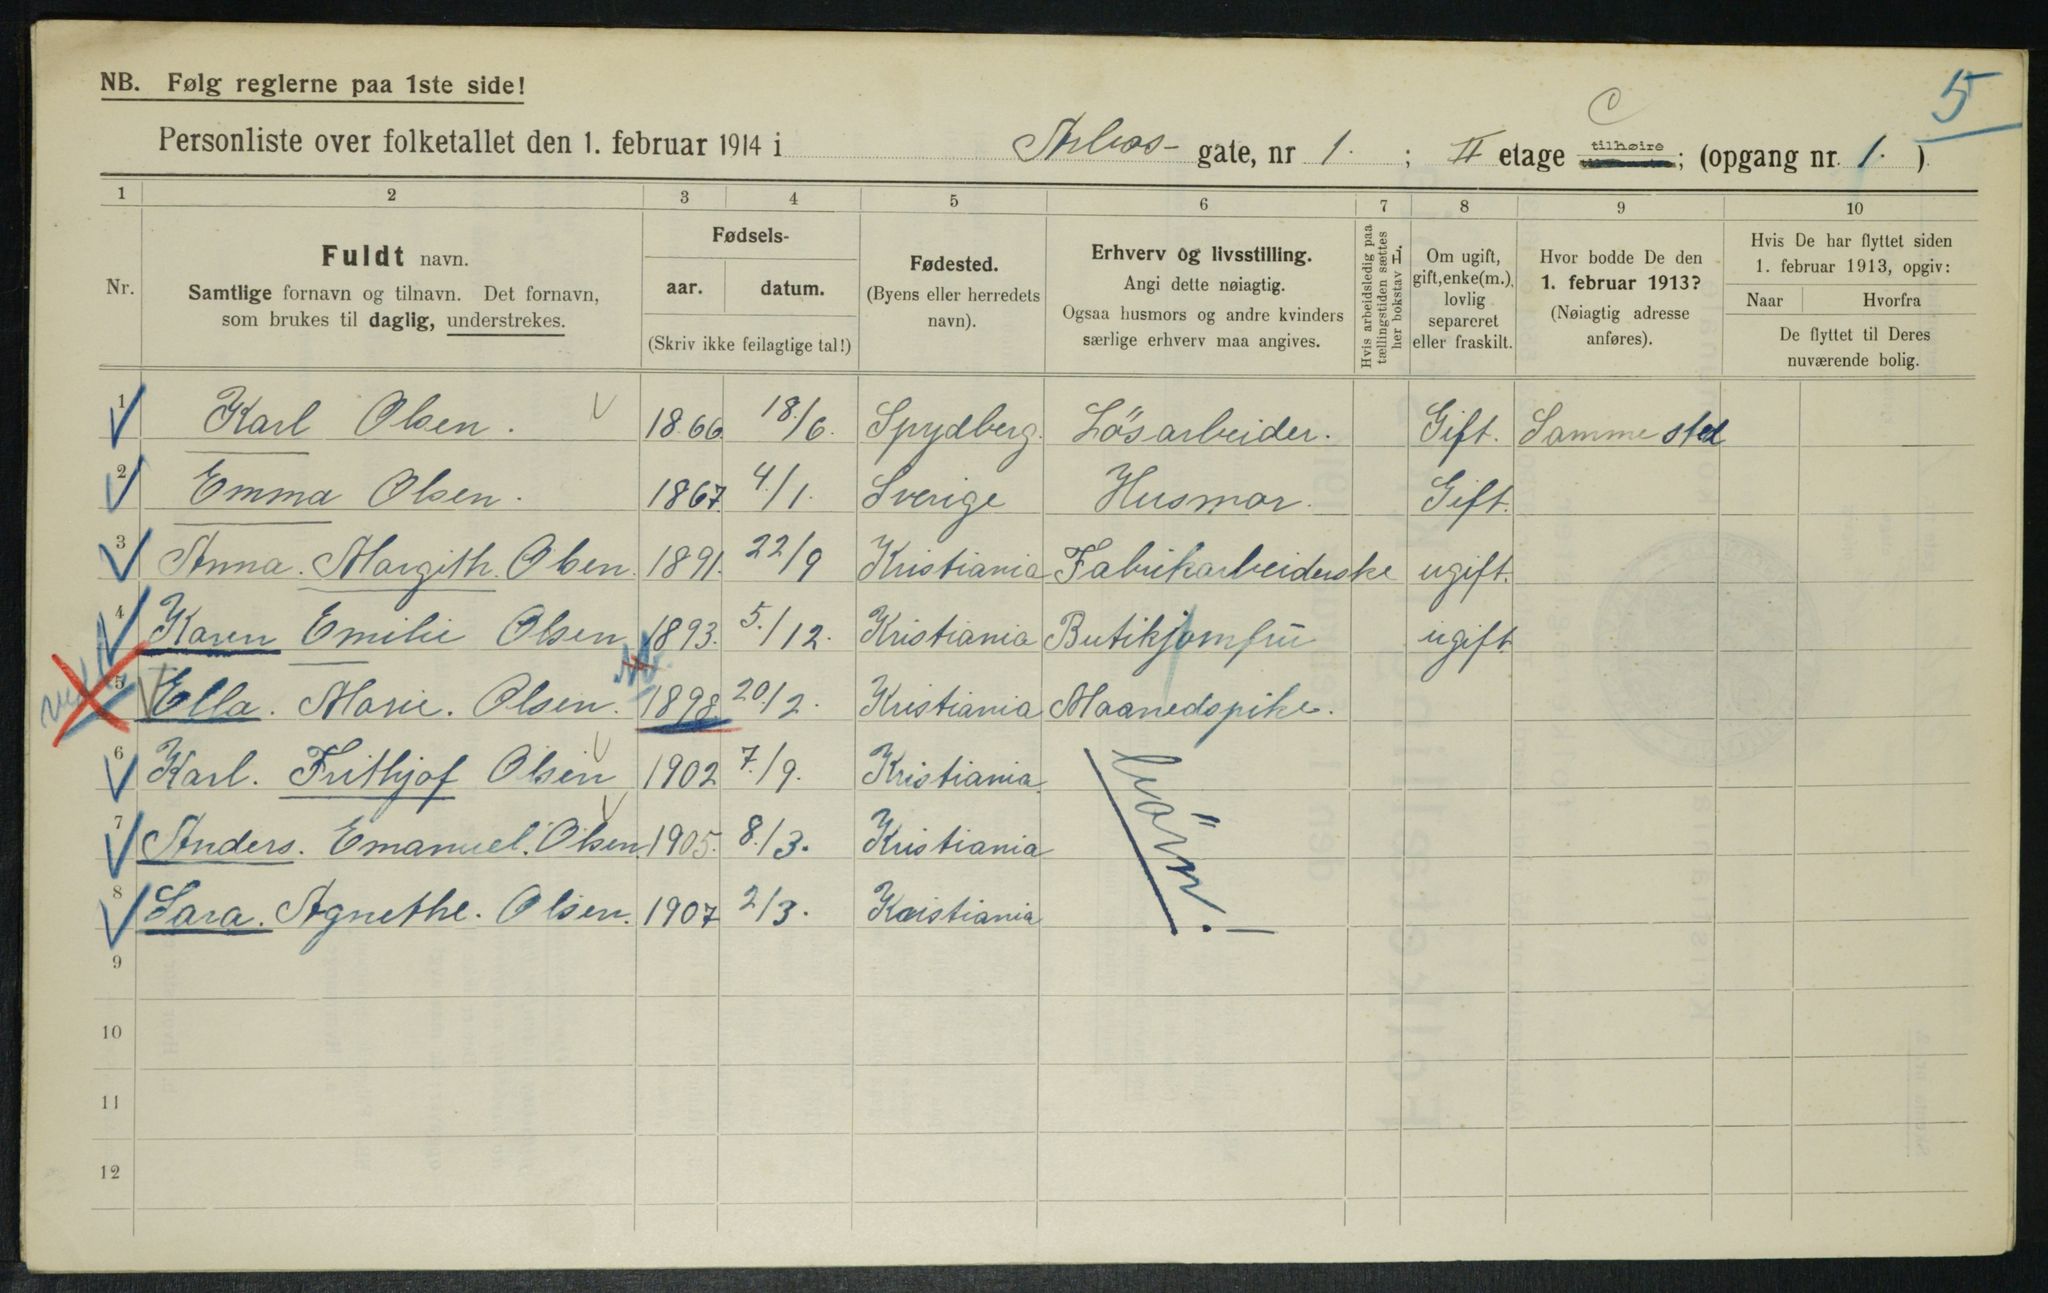 NB. Følg reglerne paa 1ste side!
5
C
Personliste over folketallet den 1. februar 1914 i Arbos- gate, nr 1. ; II etage tilhøire; (opgang nr. 1. )
1 2 3 4 5 6 7 8 9 10
Nr.
Fuldt navn.
Samtlige fornavn og tilnavn. Det fornavn,
som brukes til daglig, understrekes.
Fødsels-
aar. datum.
(Skriv ikke feilagtige tal!)
Fødested.
(Byens eller herredets
navn).
Erhverv og livsstilling.
Angi dette nøiagtig.
Ogsaa husmors og andre kvinders
særlige erhverv maa angives.
Hvis arbeidsledig paa
tællingstiden sættes
her bokstav L.
Om ugift,
gift,enke(m.),
lovlig
separeret
eller fraskilt.
Hvor bodde De den
1. februar 1913?
(Nøiagtig adresse
anføres).
Hvis De har flyttet siden
1. februar 1913, opgiv:
Naar Hvorfra
De flyttet til Deres
nuværende bolig.
1 Karl Olsen. 1866 18/6. Spydberg. Lösarbeider. Gift. Samme sted
2 Emma Olsen. 1867 4/1. Sverige Husmor. Gift.
3 Anna. Margith. Olsen 1891. 22/9 Kristiania Fabrikarbeiderske ugift.
4 Karen Emilie Olsen 1893. 5./12. Kristiania Butikjomfru ugift
5 Ella. Marie. Olsen. 1898 20/2. Kristiania Maanedspike.
6 Karl. Frithjof Olsen 1902 7./9. Kristiania.
7 Anders. Emanuel. Olsen. 1905. 8/3. Kristiania
8 Sara. Agnethe. Olsen. 1907 2/3. Kristiania
börn!
9
10
11
12